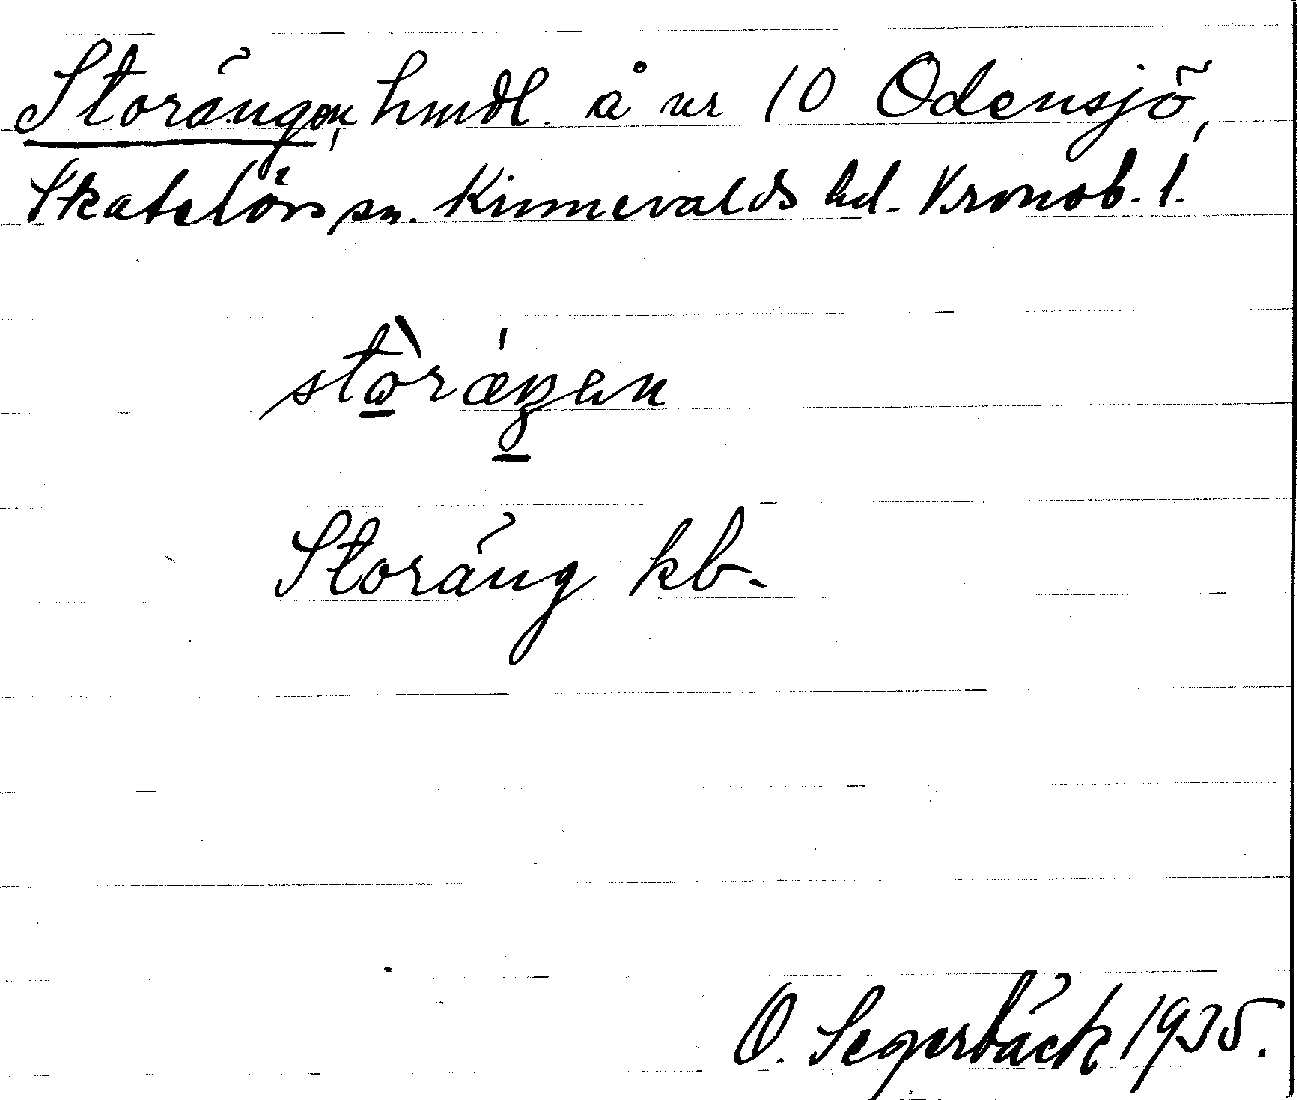 Storängen, hmdl. å nr 10 Odensjö,
Skatelövs sn. Kinnevalds hd. Kronob. l.
stòræ̀ŋen
Storäng kb.
O. Segerbäck 1935.